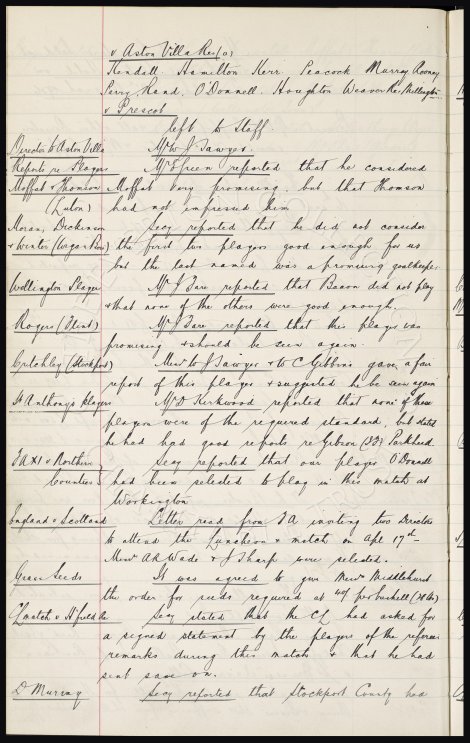 v Aston Villa Res (a)
Kendall. Hamilton Kerr. Peacock Murray Rooney
Perry, Hand, O'Donnell. Houghton Weaver Re. Millington
v Prescot
left to Staff.
Director to Aston Villa Mr W J Sawyer.
Reports re Players Mr Green reported that he considered
Moffat & Thomson Moffat very promising, but that Thomson
(Luton) had not impressed him
Moran, Dickinson Secy reported that he did not consider
& Winter (Wigan Boro) the first two players good enough for us
but the last named was a promising goalkeeper
Wellington Players Mr J Fare reported that Bacon did not play
& that none of the others were good enough.
Rogers (Flint) Mr J Fare reported that this player was
promising & should be seen again.
Critchley (Stockport) Messrs W J Sawyer & W C Gibbins gave a fair
report of this player & suggested he be seen again
St Anthony's players Mr D Kirkwood reported that none of these
players were of the required standard, but stated
he had had good reports re Gibson (IL) Parkhead.
FA XI v Northern Secy reported that our player O'Donnell
Counties had been selected to play in this match at
Workington
England v Scotland Letter read from FA inviting two Directors
to attend the Luncheon & match on Apl 17th
Messrs A R Wade & J Sharp were selected.
Grass Seeds It was agreed to give Messrs Middlehurst
the order for seeds required at per bushell
CL match v H'field Secy stated that the CL had asked for
a signed statement by the players of the referees
remarks during this match & that he had
sent same on.
D Murray Secy reported that Stockport County had